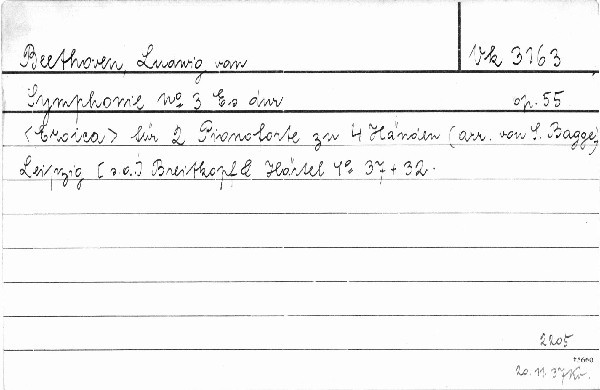 Beethoven, Ludwig van Vk 3163
Symphonie no 3 Es dur op. 55
<Eroica> für 2 Pianoforte zu 4 Händen (arr. von S. Bagge)
Leipzig [s.a.] Breitkopf & Härtel 4° 37+32.
2205
20.11.37 Kv.